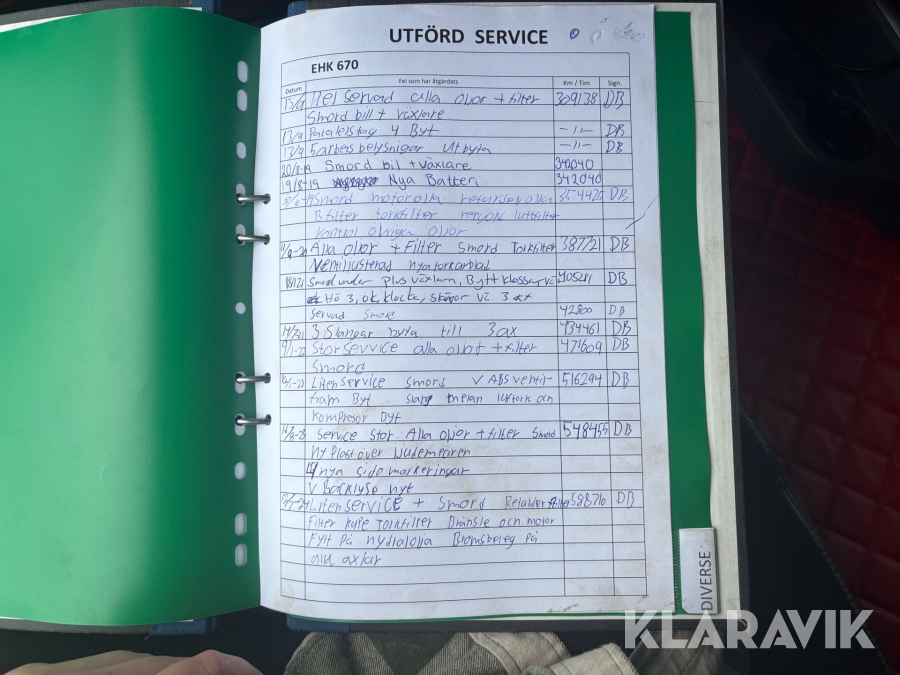 UTFÖRD SERVICE
EHK 670
Datum Fel som har åtgärdats Km / Tim Sign.
13/9 Hel servad alla oljor + filter 309138 DB
Smord bill + växlare
13/9 Paralelstag 4 Byt -11- DB
13/9 5 arbetsbelysnigar Utbyta -11- DB
20/8-19 Smord bil + växlare 342040
19/8-19 Nya Batteri 342040
Smord motorolja 354425 DB
Bfilter torkfilter luftfilter
kontrol oljor
Alla oljor + Filter Smord Torkfilter 387721 DB
Ventiljusterad nya torkarblad
Smord under plus växlarn, Bytt klossar DB
Hö 3, ok, klocka, Vä 3
Servad Smord DB
14/7-21 3 Slangar byta till 3 ax 434461 DB
Stor Service alla oljor + filter 471609 DB
Smord
Liten service Smord V ABS venti- 516294 DB
fram Byt slang melan lufttork och
kompresor Byt
Service Stor Alla oljor + filter Smord 548455 DB
ny Plast över
4 nya Sido markeringar
V Backlyse nyt
Liten Service + Smord Retalder filter 598716 DB
Filter kupe Torkfilter Bränsle och motor
Fylt På hydralolja Bromsbeleg På
alla axlar
DIVERSE
KLARAVIK